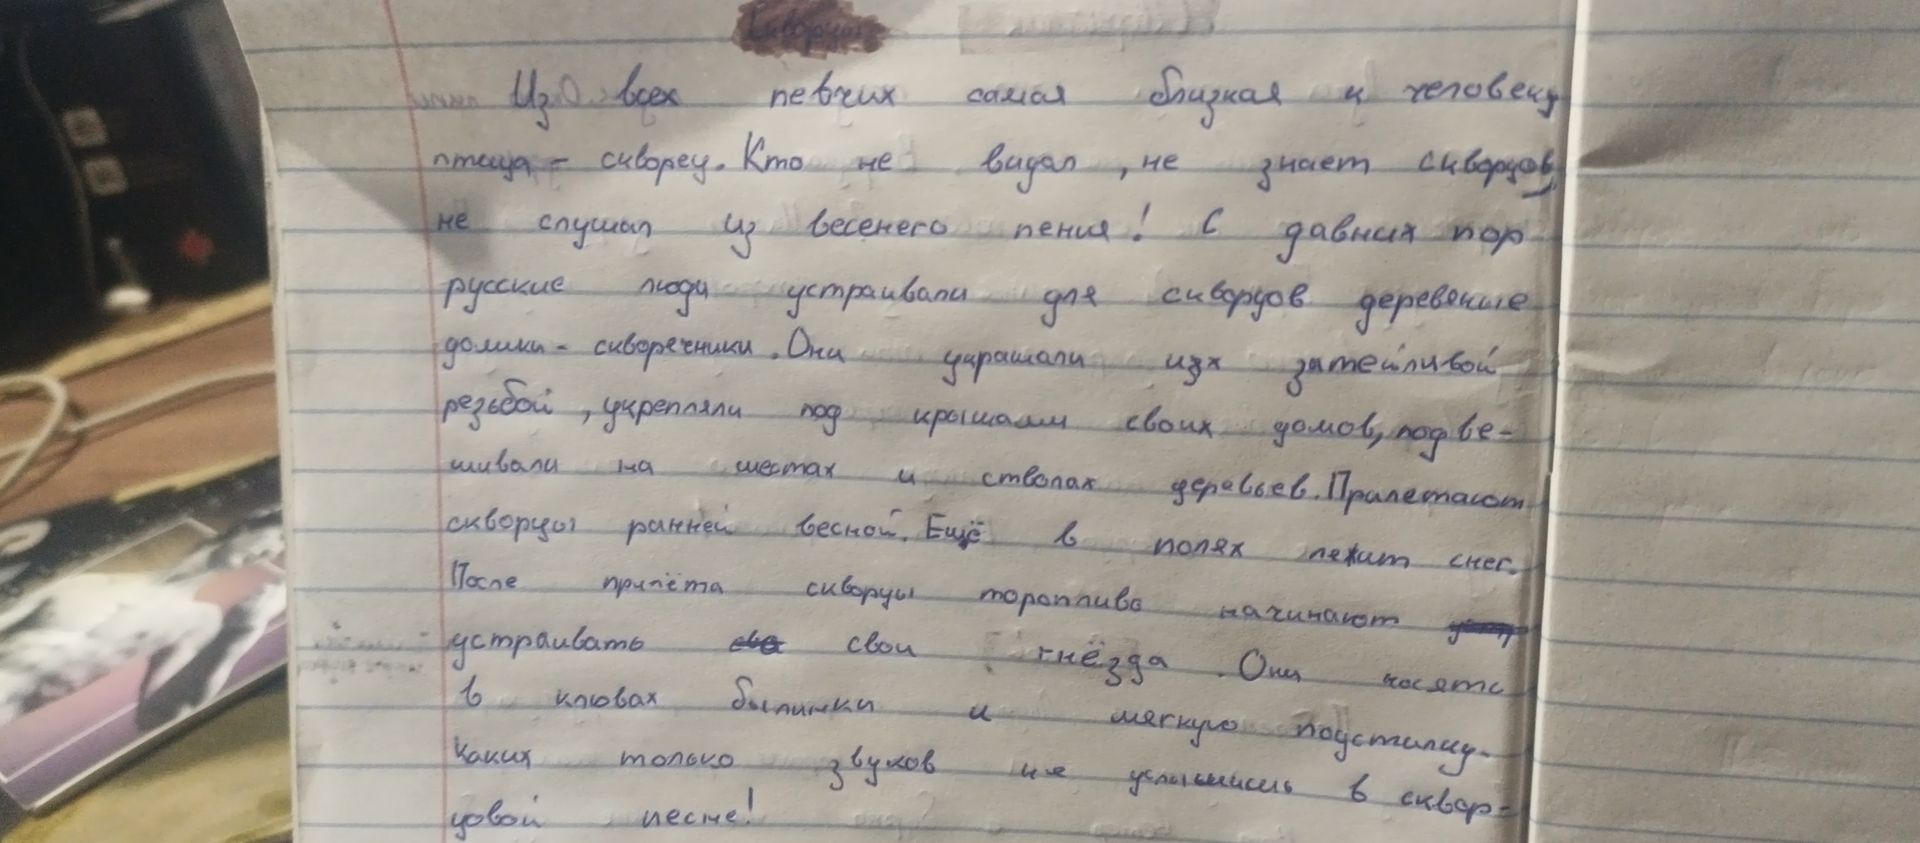 Скворцы
Из всех певчих самая близкая к человеку
птица - скворец. Кто не видал, не знает скворцов,
не слушал из весенего пения! С давних пор
русские люди устраивали для скворцов деревяные
домики - скворечники. Они украшали изх затейливой
резьбой, укрепляли под крышами своих домов, подве-
шивали на шестах и стволах деревьев. Прилетают
скворцы ранней весной. Ещё в полях лежит снег.
После прилёта скворцы торопливо начинают
устраивать свои гнёзда. Они носятс
в клювах былинки и мягкую подстилку.
Каких только звуков не услышишь в сквор-
цовой песне!